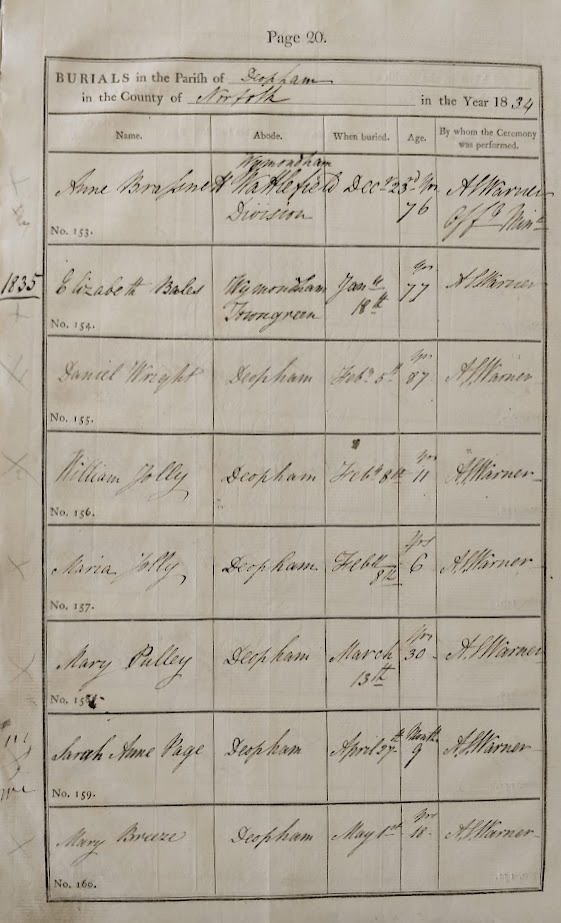 Page 20.
BURIALS in the Parish of Deopham
in the County of Norfolk in the Year 1834
Name. Abode. When buried. Age. By whom the Ceremony was performed.
Wymondham
Anne Braſsnett Wattlefield Decr 23rd Yrs A S Warner
Division 76 Offg Minr
No. 153.
1835 Elizabeth Bales Wymondham Jany Yrs 77 A S Warner
Towngreen 18th
No. 154.
Daniel Wright Deopham Feby 5th Yrs 87 A S Warner
No. 155.
William Jolly Deopham Feby 8th Yrs 11 A S Warner
No. 156.
Maria Jolly Deopham Feby Yrs 6 A S Warner
8th
No. 157.
Mary Pulley Deopham March Yrs 30 A S Warner
13th
No. 158.
Sarah Anne Page Deopham April 27th Months 9 A S Warner
No. 159.
Mary Breeze Deopham May 1st Yrs A S Warner
No. 160.